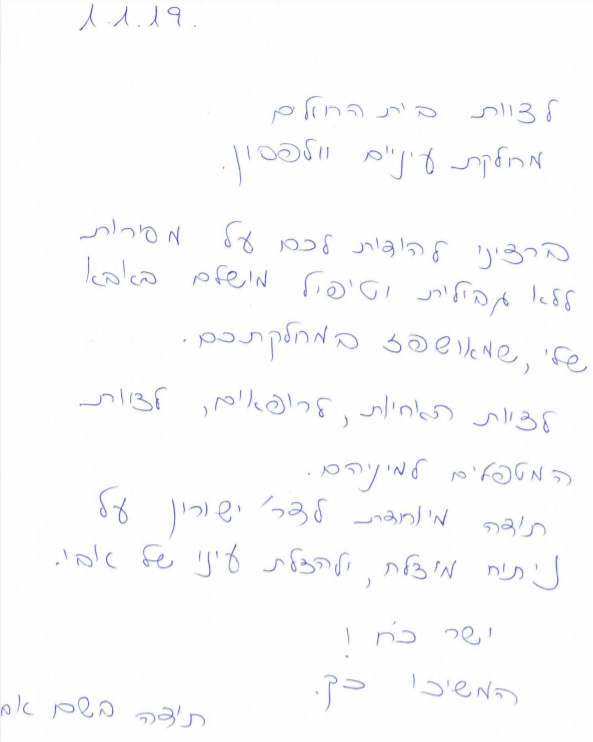 1.1.19.
לצוות בית החולים
מחלקת עיניים וולפסון.
ברצוני להודות לכם על מסירות
ללא גבולות וטיפול מושלם באבא
שלי, שמאושפז במחלקתכם.
לצוות האחיות, לרופאים, לצוות
המטפלים למיניהם.
תודה מיוחדת לדר' ישורון על
ניתוח מוצלח, ולהצלת עיני של אבי.
ישר כח!
המשיכו כך.
תודה בשם